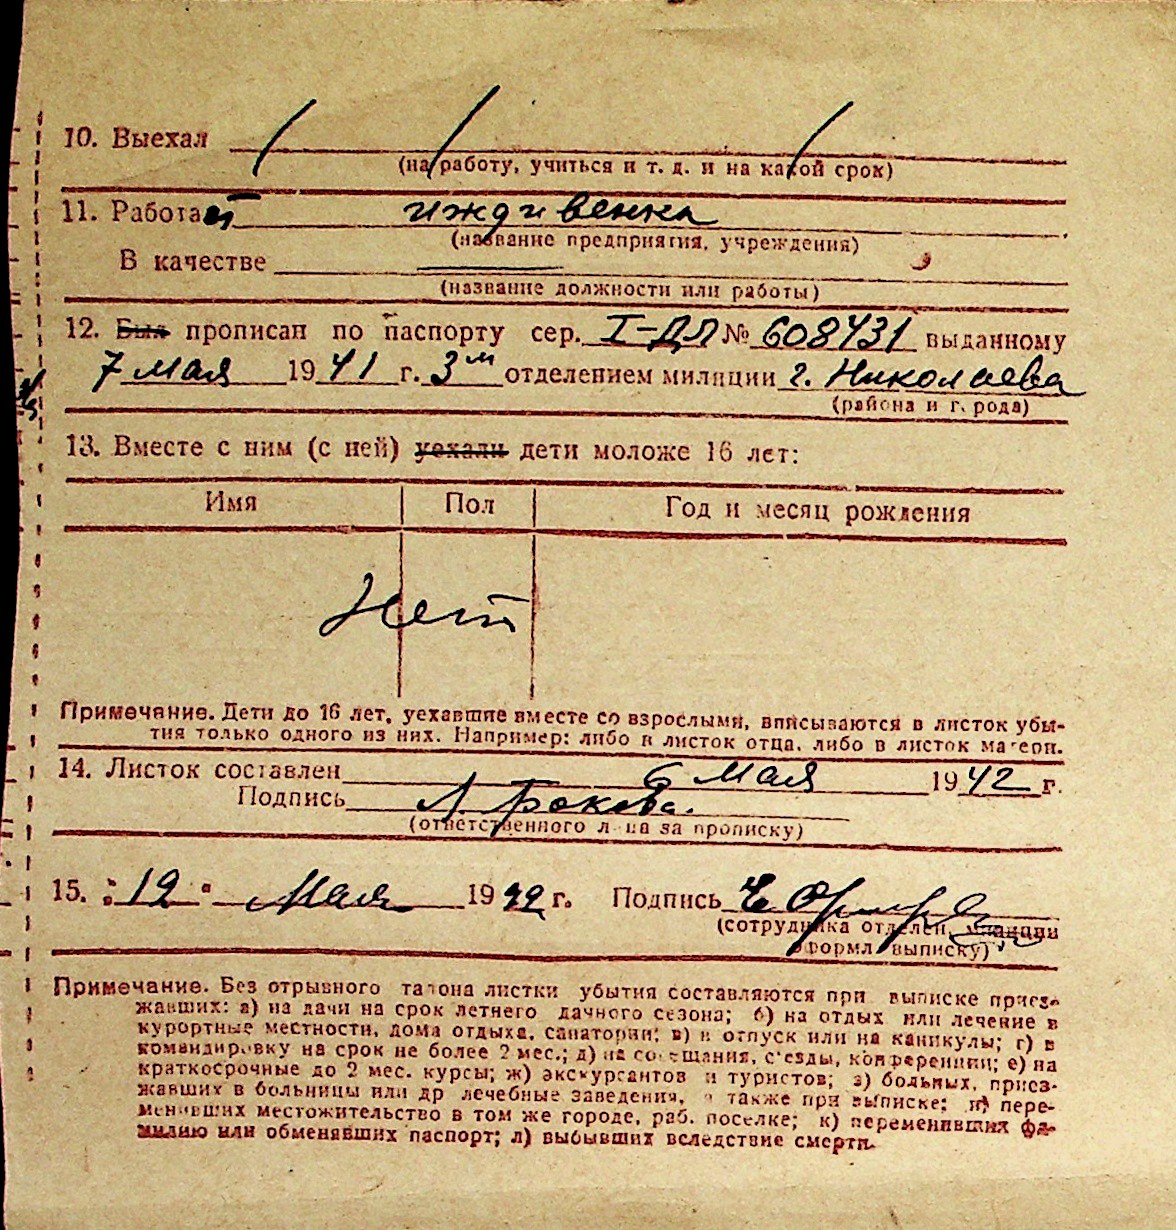 10. Выехал
(на работу, учиться и т. д. и на какой срок)
11. Работает иждивенка
(название предприятия, учреждения)
В качестве
(название должности или работы)
12. Был прописан по паспорту сер. I-ДЛ № 608431 выданному
7 мая 1941 г. 3м отделением милиции г. Николаева
(района и г. рода)
13. Вместе с ним (с ней) уехали дети моложе 16 лет:
Имя Пол Год и месяц рождения
Нет
Примечание. Дети до 16 лет, уехавшие вместе со взрослыми, вписываются в листок убы-
тия только одного из них. Например: либо в листок отца, либо в листок матери.
14. Листок составлен 6 мая 1942 г.
Подпись
(ответственного лица за прописку)
15. "12" Мая 1942 г. Подпись
(сотрудника отделен. милиции
оформл выписку)
Примечание. Без отрывного талона листки убытия составляются при выписке приез-
жавших: а) на дачи на срок летнего дачного сезона; б) на отдых или лечение в
курортные местности, дома отдыха, санатории; в) в отпуск или на каникулы; г) в
командировку на срок не более 2 мес.; д) на совещания, съезды, конференции; е) на
краткосрочные до 2 мес. курсы; ж) экскурсантов и туристов; з) больных, приез-
жавших в больницы или др лечебные заведения, а также при выписке: и) пере-
менивших местожительство в том же городе, раб. поселке; к) переменивших фа-
милию или обменявших паспорт; л) выбывших вследствие смерти.